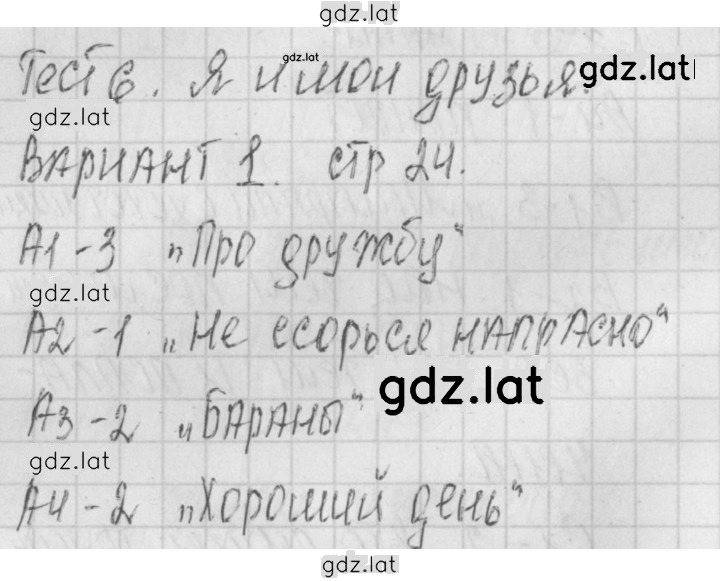 gdz.lat
Тест 6. Я и мои друзья.
gdz.lat
gdz.lat
gdz.lat
Вариант 1. стр 24.
А1-3 „Про дружбу“
gdz.lat
А2-1 „Не ссорься напрасно“
gdz.lat
А3-2 „Бараны“
gdz.lat
А4-2 „Хороший день“
gdz.lat